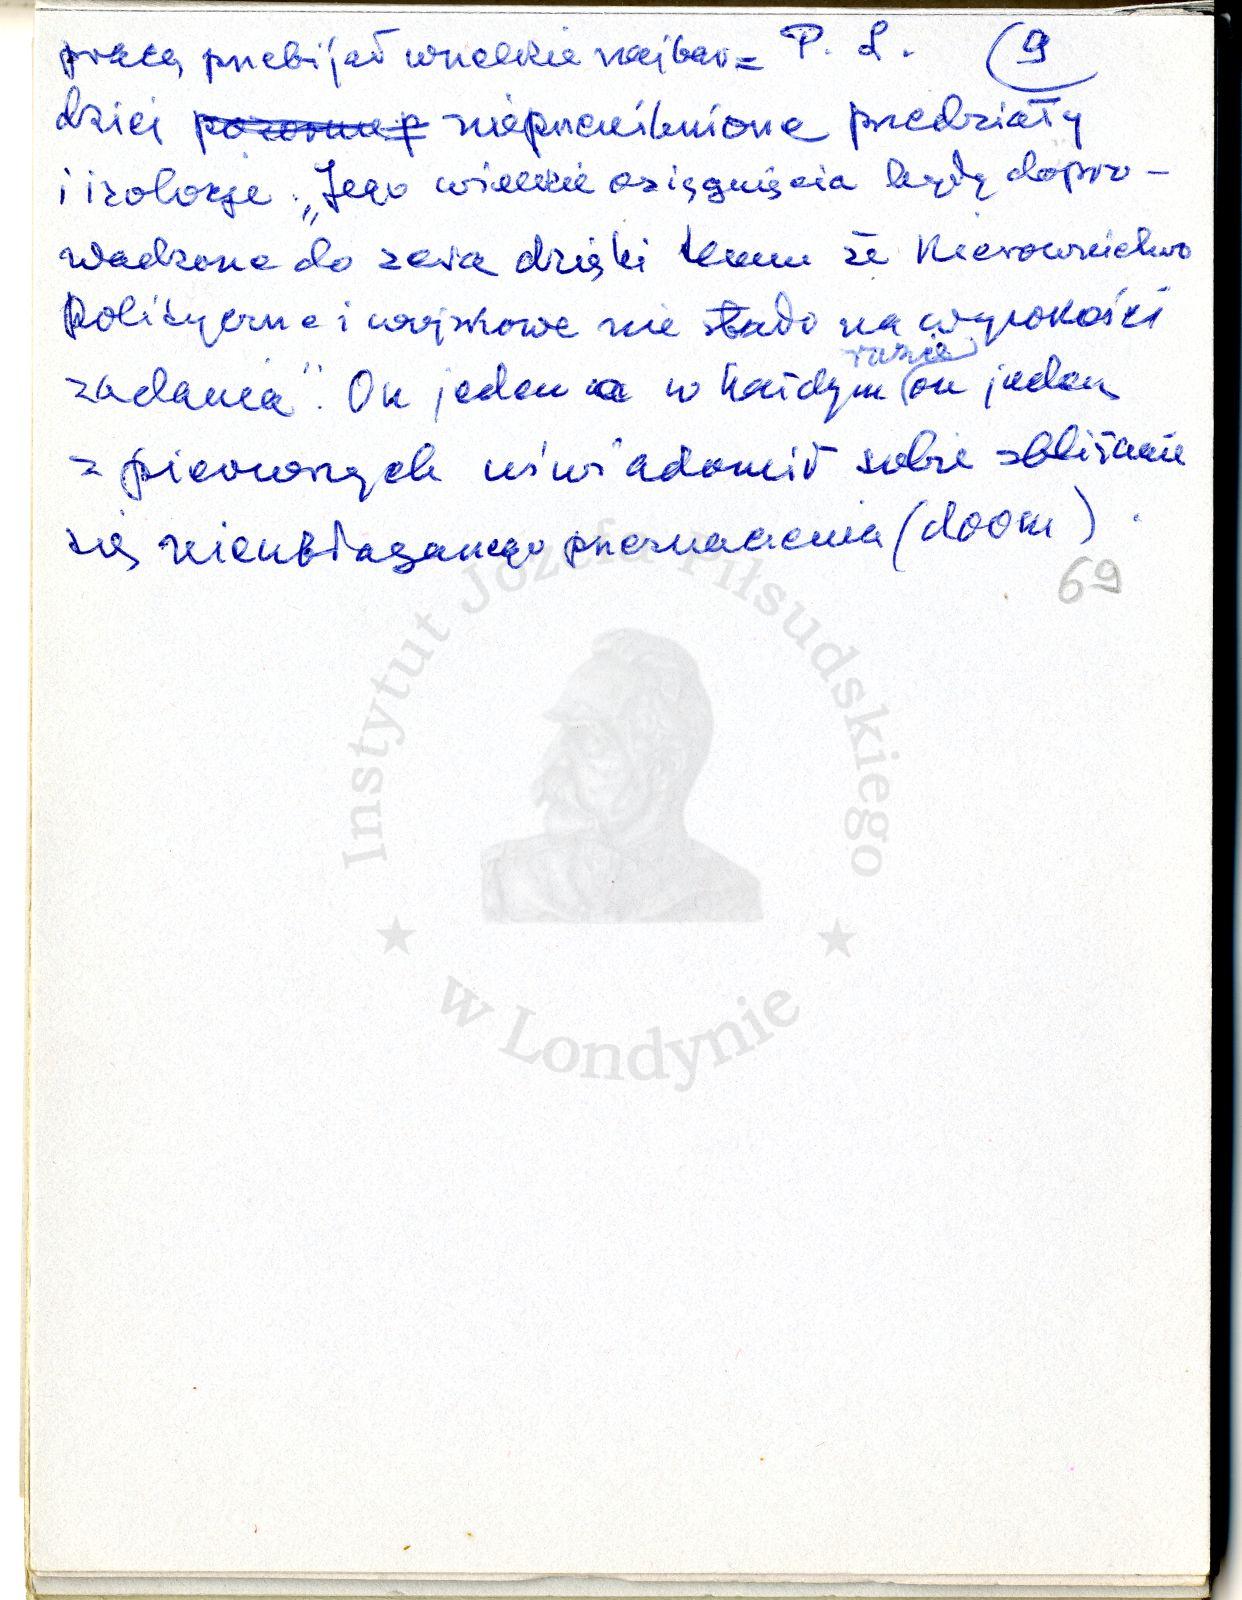 pracą przebijał wszelkie najbar= P. L. (9
dziej nieprzeniknione przedziały
i izolacje. „Jego wielkie osiągnięcia będą dopro-
wadzone do zera dzięki temu że Kierownictwo
Polityczne i wojskowe nie stało na wysokości
zadania". On jeden a w każdym razie on jeden
z pierwszych uświadomił sobie zbliżanie
się nieubłaganego przeznaczenia (doom).
69
Instytut Józefa Piłsudskiego
w Londynie